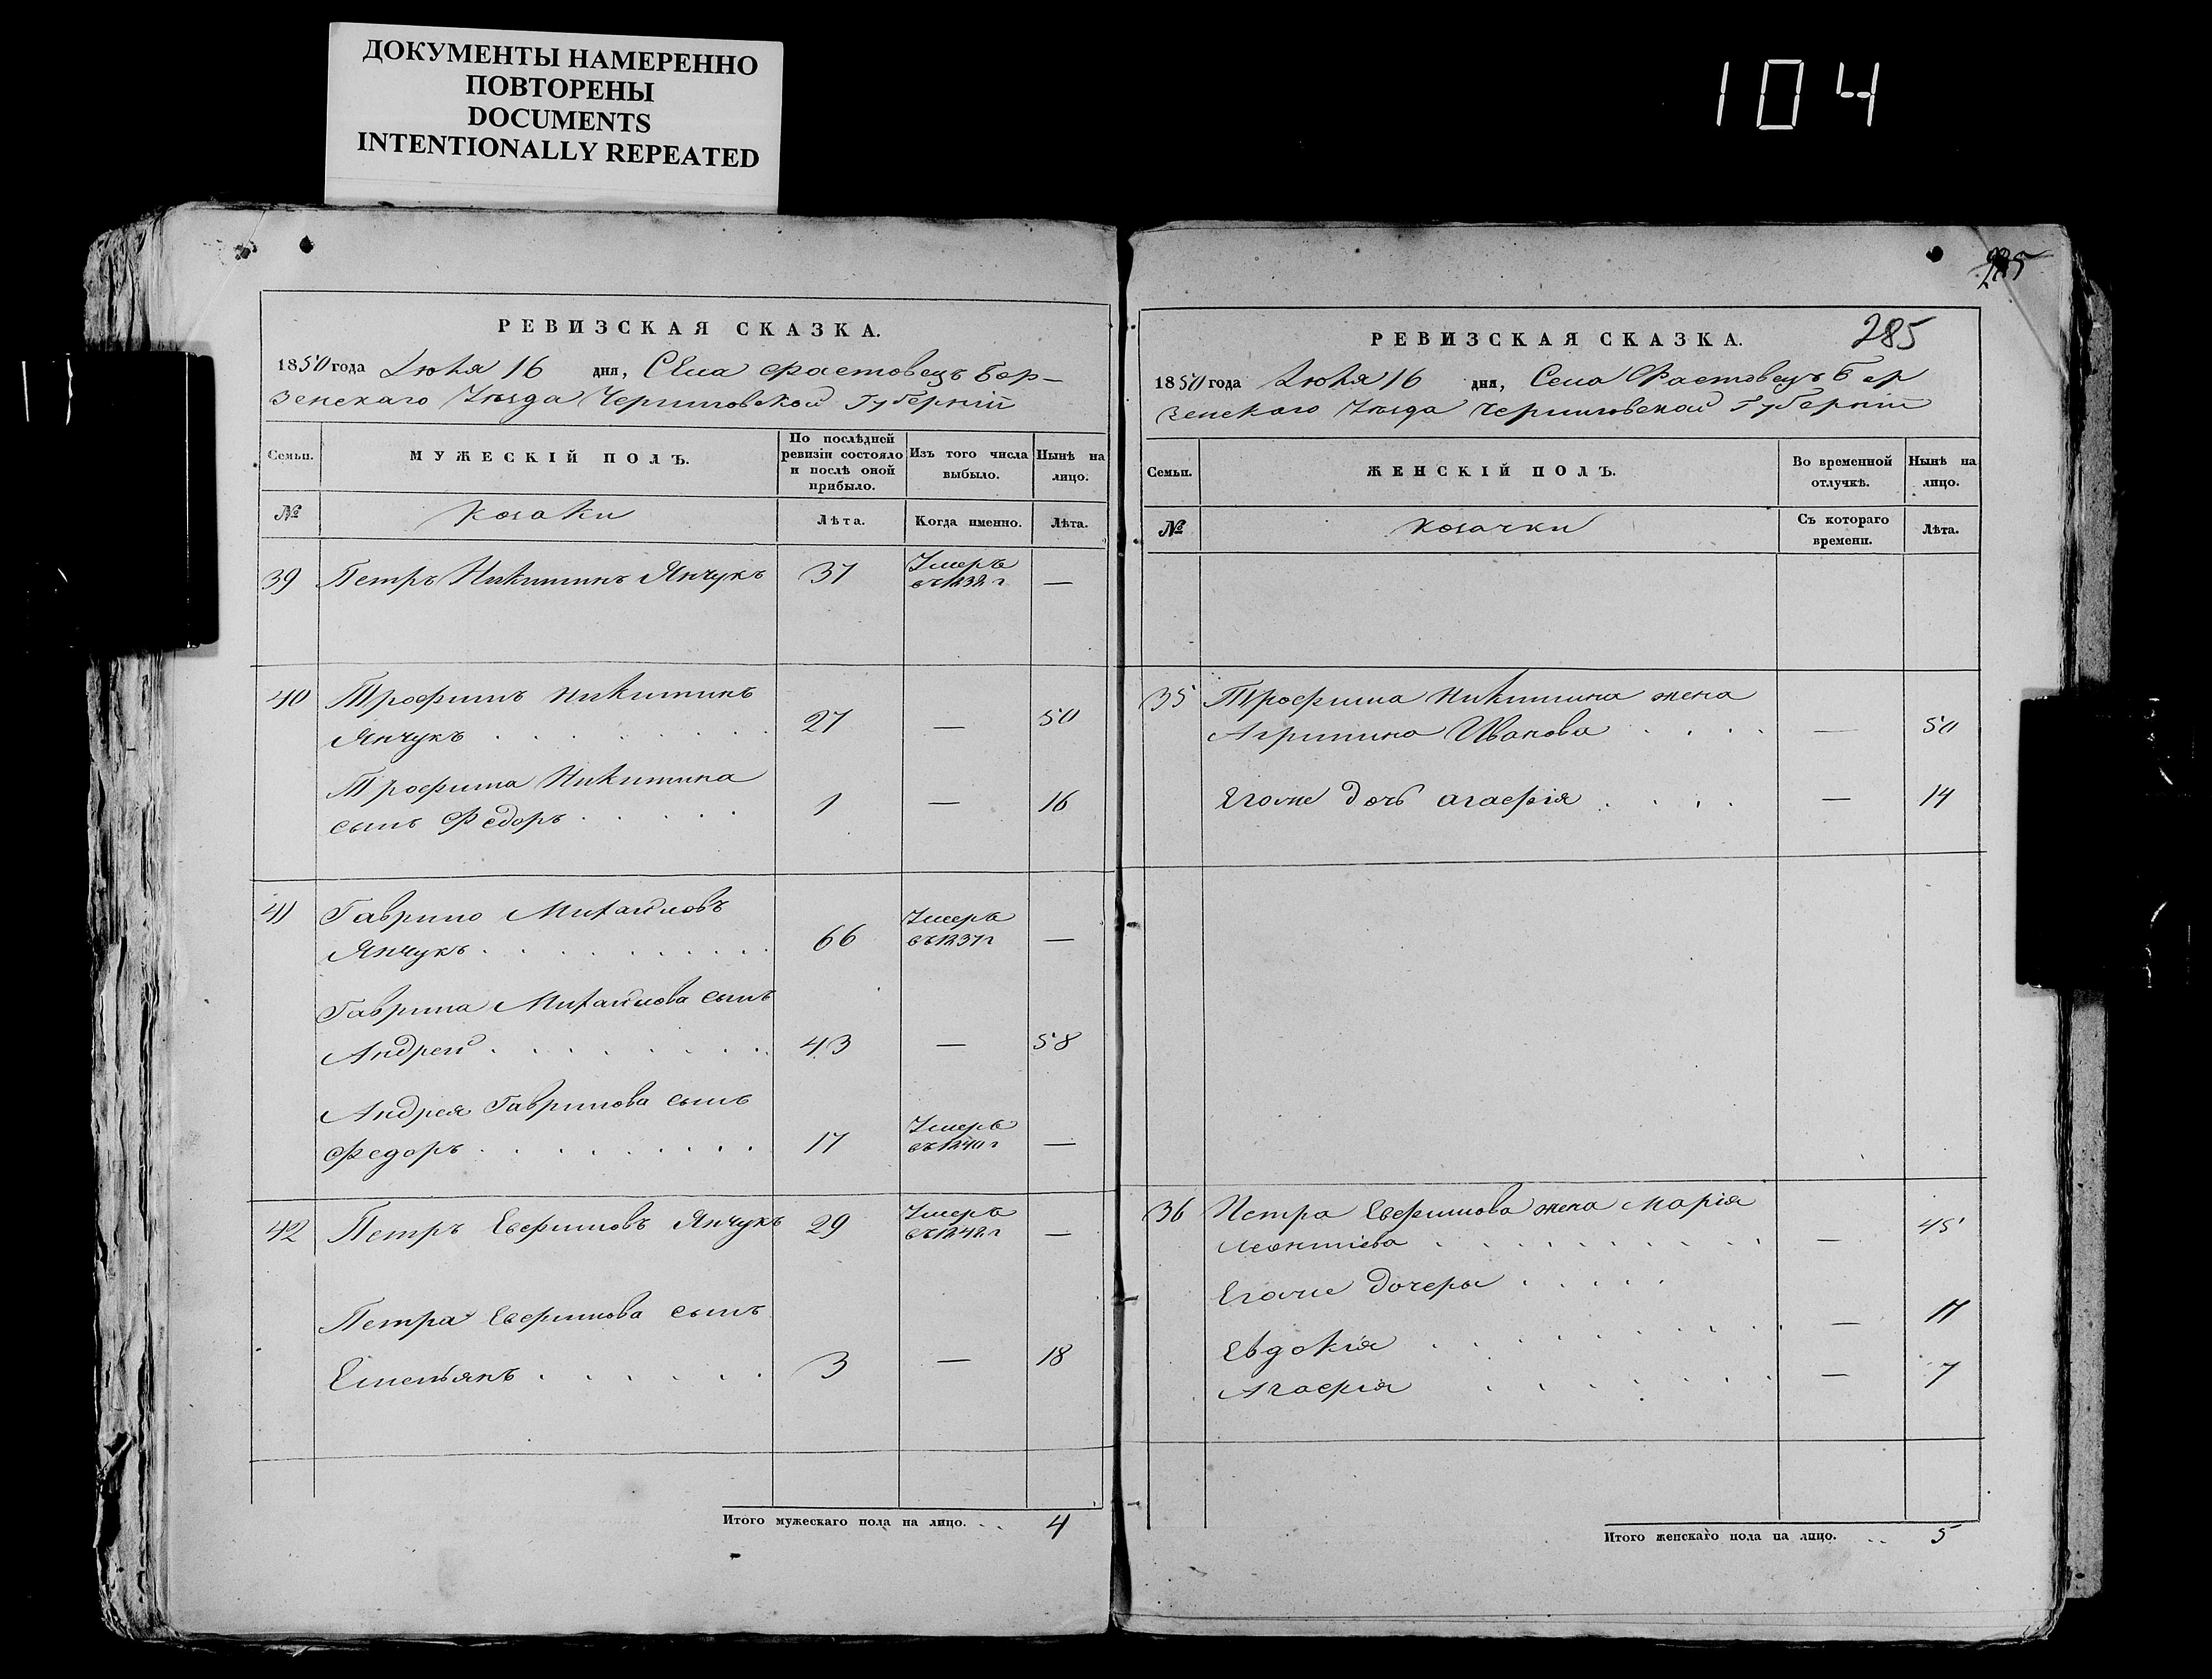 ДОКУМЕНТЫ НАМЕРЕННО
ПОВТОРЕНЫ
DOCUMENTS
INTENTIONALLY REPEATED
104
РЕВИЗСКАЯ СКАЗКА.
1850 года Июля 16 дня, Села Фастовецъ Бор-
зенскаго Уѣзда Черниговской Губерніи
Семьи. МУЖЕСКІЙ ПОЛЪ. По послѣдней ревизіи состояло и послѣ оной прибыло. Изъ того числа выбыло. Нынѣ на лицо.
№ Козаки Лѣта. Когда именно. Лѣта.
39 Петръ Никитинъ Янчукъ 37 Умеръ въ 1838 г —
40 Трофимъ Никитинъ
Янчукъ 27 — 50
Трофима Никитина
сынъ Федоръ 1 — 16
41 Гаврило Михайловъ
Янчукъ 66 Умеръ въ 1837 г —
Гаврила Михайлова сынъ
Андрей 43 — 58
Андрея Гаврилова сынъ
Федоръ 17 Умеръ въ 1840 г —
42 Петръ Евфимовъ Янчукъ 29 Умеръ въ 1848 г —
Петра Евфимова сынъ
Емельянъ 3 — 18
Итого мужескаго пола на лицо. 4
285
РЕВИЗСКАЯ СКАЗКА. 285
1850 года Июля 16 дня, Села Фастовецъ Бор
зенскаго Уѣзда Черниговской Губерніи
Семьи. ЖЕНСКІЙ ПОЛЪ. Во временной отлучкѣ. Нынѣ на лицо.
№ Козачки Съ котораго времени. Лѣта.
35 Трофима Никитина жена
Агрипина Иванова — 50
Егоже дочь Агафія — 14
36 Петра Евфимова жена Марія
Леонтіева — 45
Егоже дочеры
Евдокія — 17
Агафія — 7
Итого женскаго пола на лицо. 5